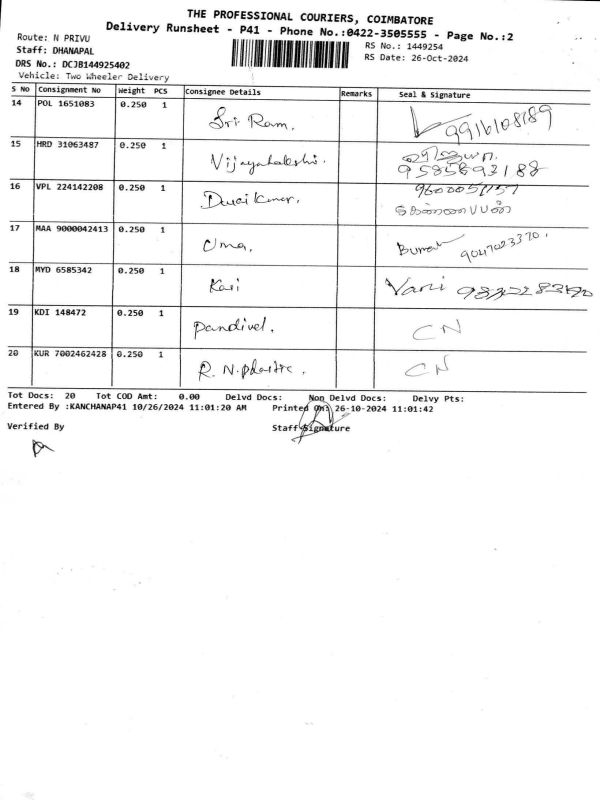 THE PROFESSIONAL COURIERS, COIMBATORE
Delivery Runsheet - P41 - Phone No.:0422-3505555 - Page No.:2
Route: N PRIVU
RS No.: 1449254
Staff: DHANAPAL
RS Date: 26-Oct-2024
DRS No.: DCJB144925402
Vehicle: Two Wheeler Delivery
S No Consignment No Weight PCS Consignee Details Remarks Seal & Signature
14 POL 1651083 0.250 1 Sri Ram. 9916108189
15 HRD 31063487 0.250 1 9585893188
16 VPL 224142208 0.250 1
17 MAA 9000042413 0.250 1 Uma.
18 MYD 6585342 0.250 1 Kari Vani
19 KDI 148472 0.250 1 Pandivel. CN
20 KUR 7002462428 0.250 1 R. N. CN
Tot Docs: 20 Tot COD Amt: 0.00 Delvd Docs: Non Delvd Docs: Delvy Pts:
Entered By :KANCHANAP41 10/26/2024 11:01:20 AM Printed On: 26-10-2024 11:01:42
Verified By Staff Signature